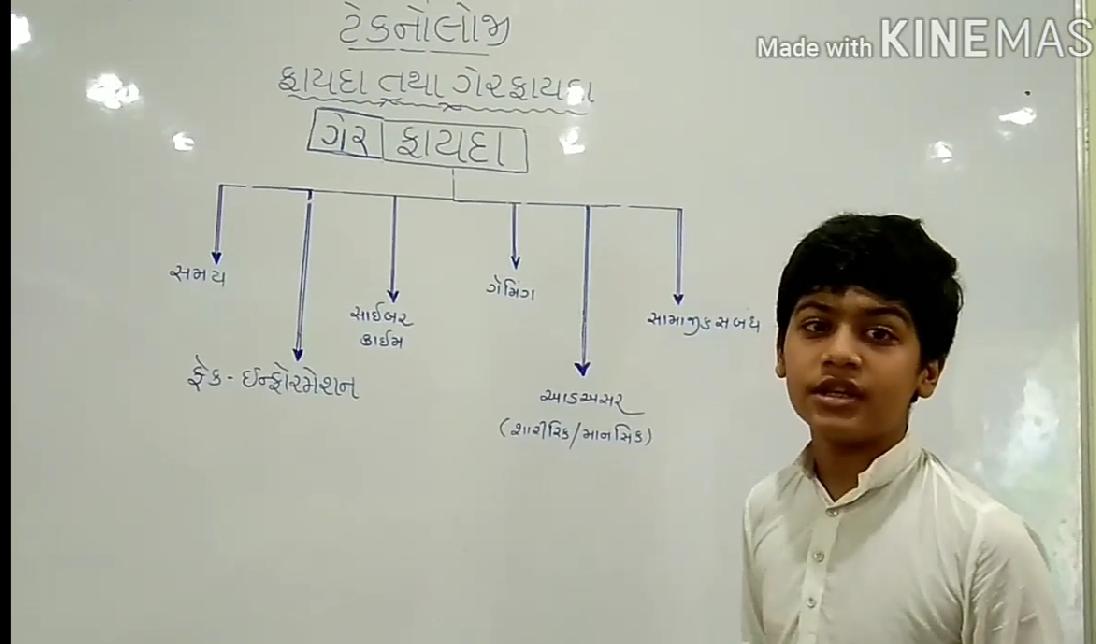 Made with KINEMAS
ટેકનોલોજી
ફાયદા તથા ગેરફાયદા
ગેર ફાયદા
સમય
ફેક - ઈન્ફોરમેશન
સાઈબર
ક્રાઈમ
ગેમિંગ
આડઅસર
(શારીરિક/માનસિક)
સામાજીક સબંધ